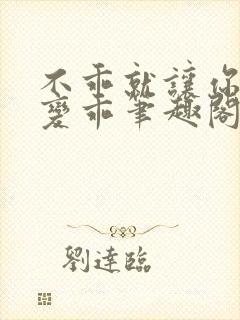 不乖就讓你
變乖筆趣閣
劉達臨